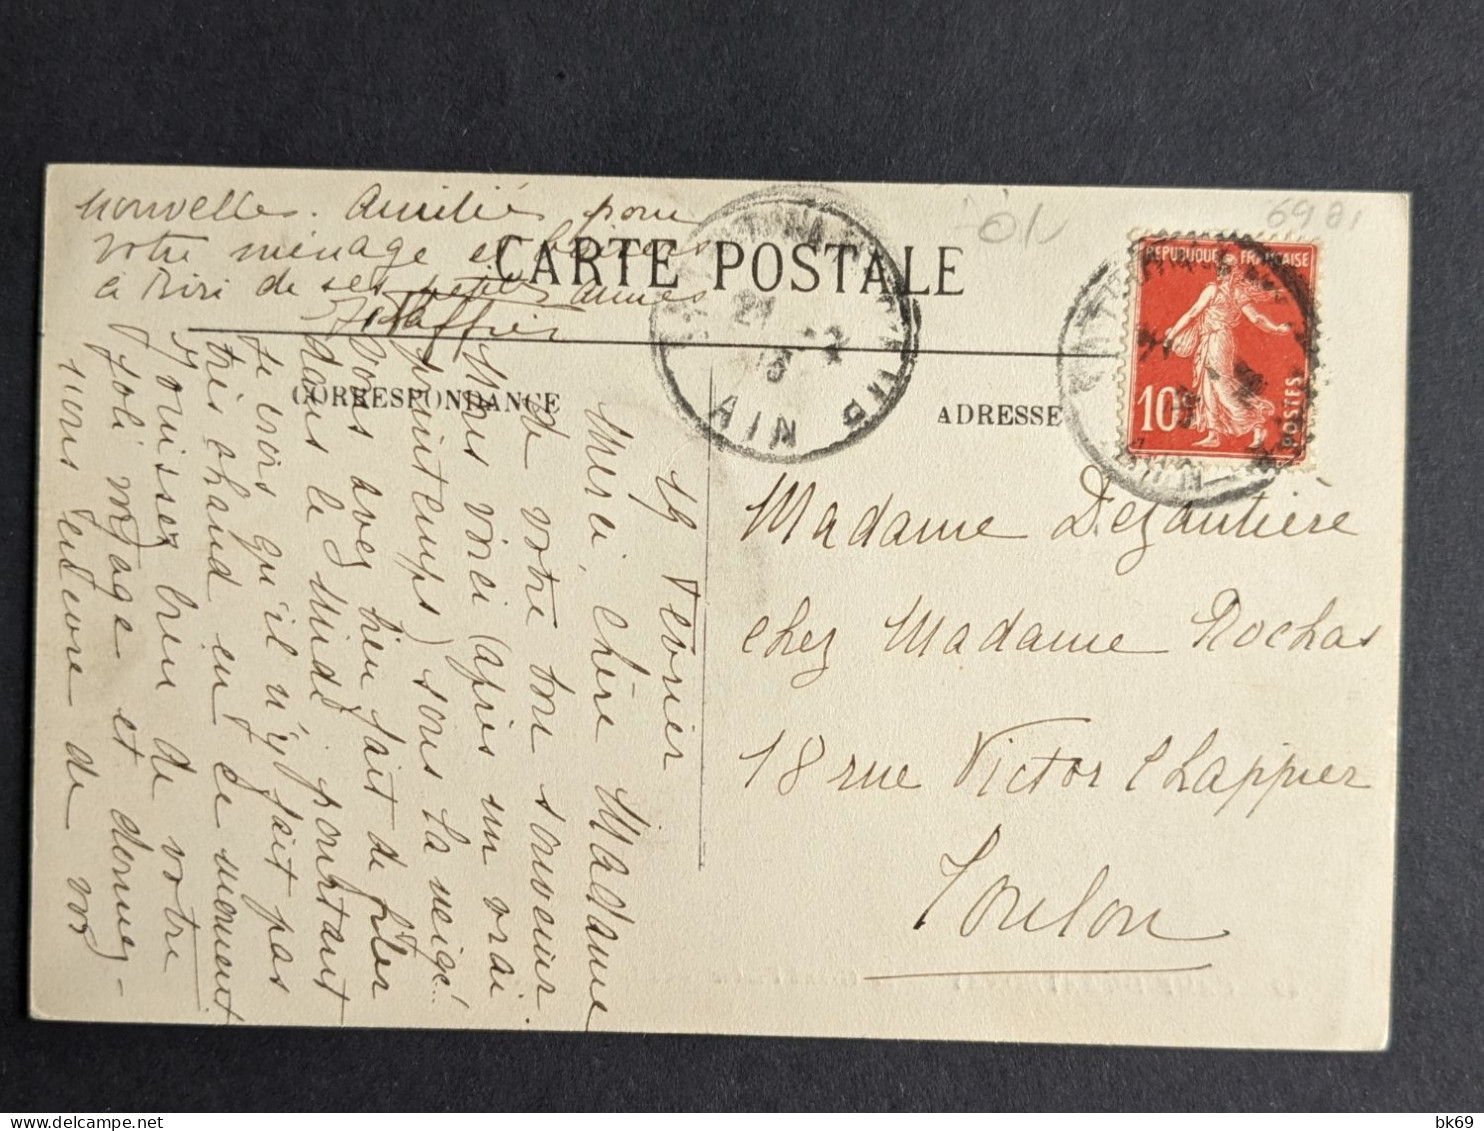 CARTE POSTALE
CORRESPONDANCE
ADRESSE
19 Février
Merci, chère Madame
de votre bon souvenir
Nous voici (après un vrai
printemps) sous la neige!..
vous avez bien fait de filer
dans le midi pourtant
je crois qu'il n'y fait pas
très chaud en ce moment
Jouissez bien de votre
joli voyage et donnez-
nous encore de vos
nouvelles. Amitiés pour
votre ménage et
à Riri de ses petites amies
Madame Dezautière
chez Madame Rochas
18 rue Victor Chappier
Toulon
REPUBLIQUE FRANÇAISE
10c
POSTES
AIN
6981
bk69